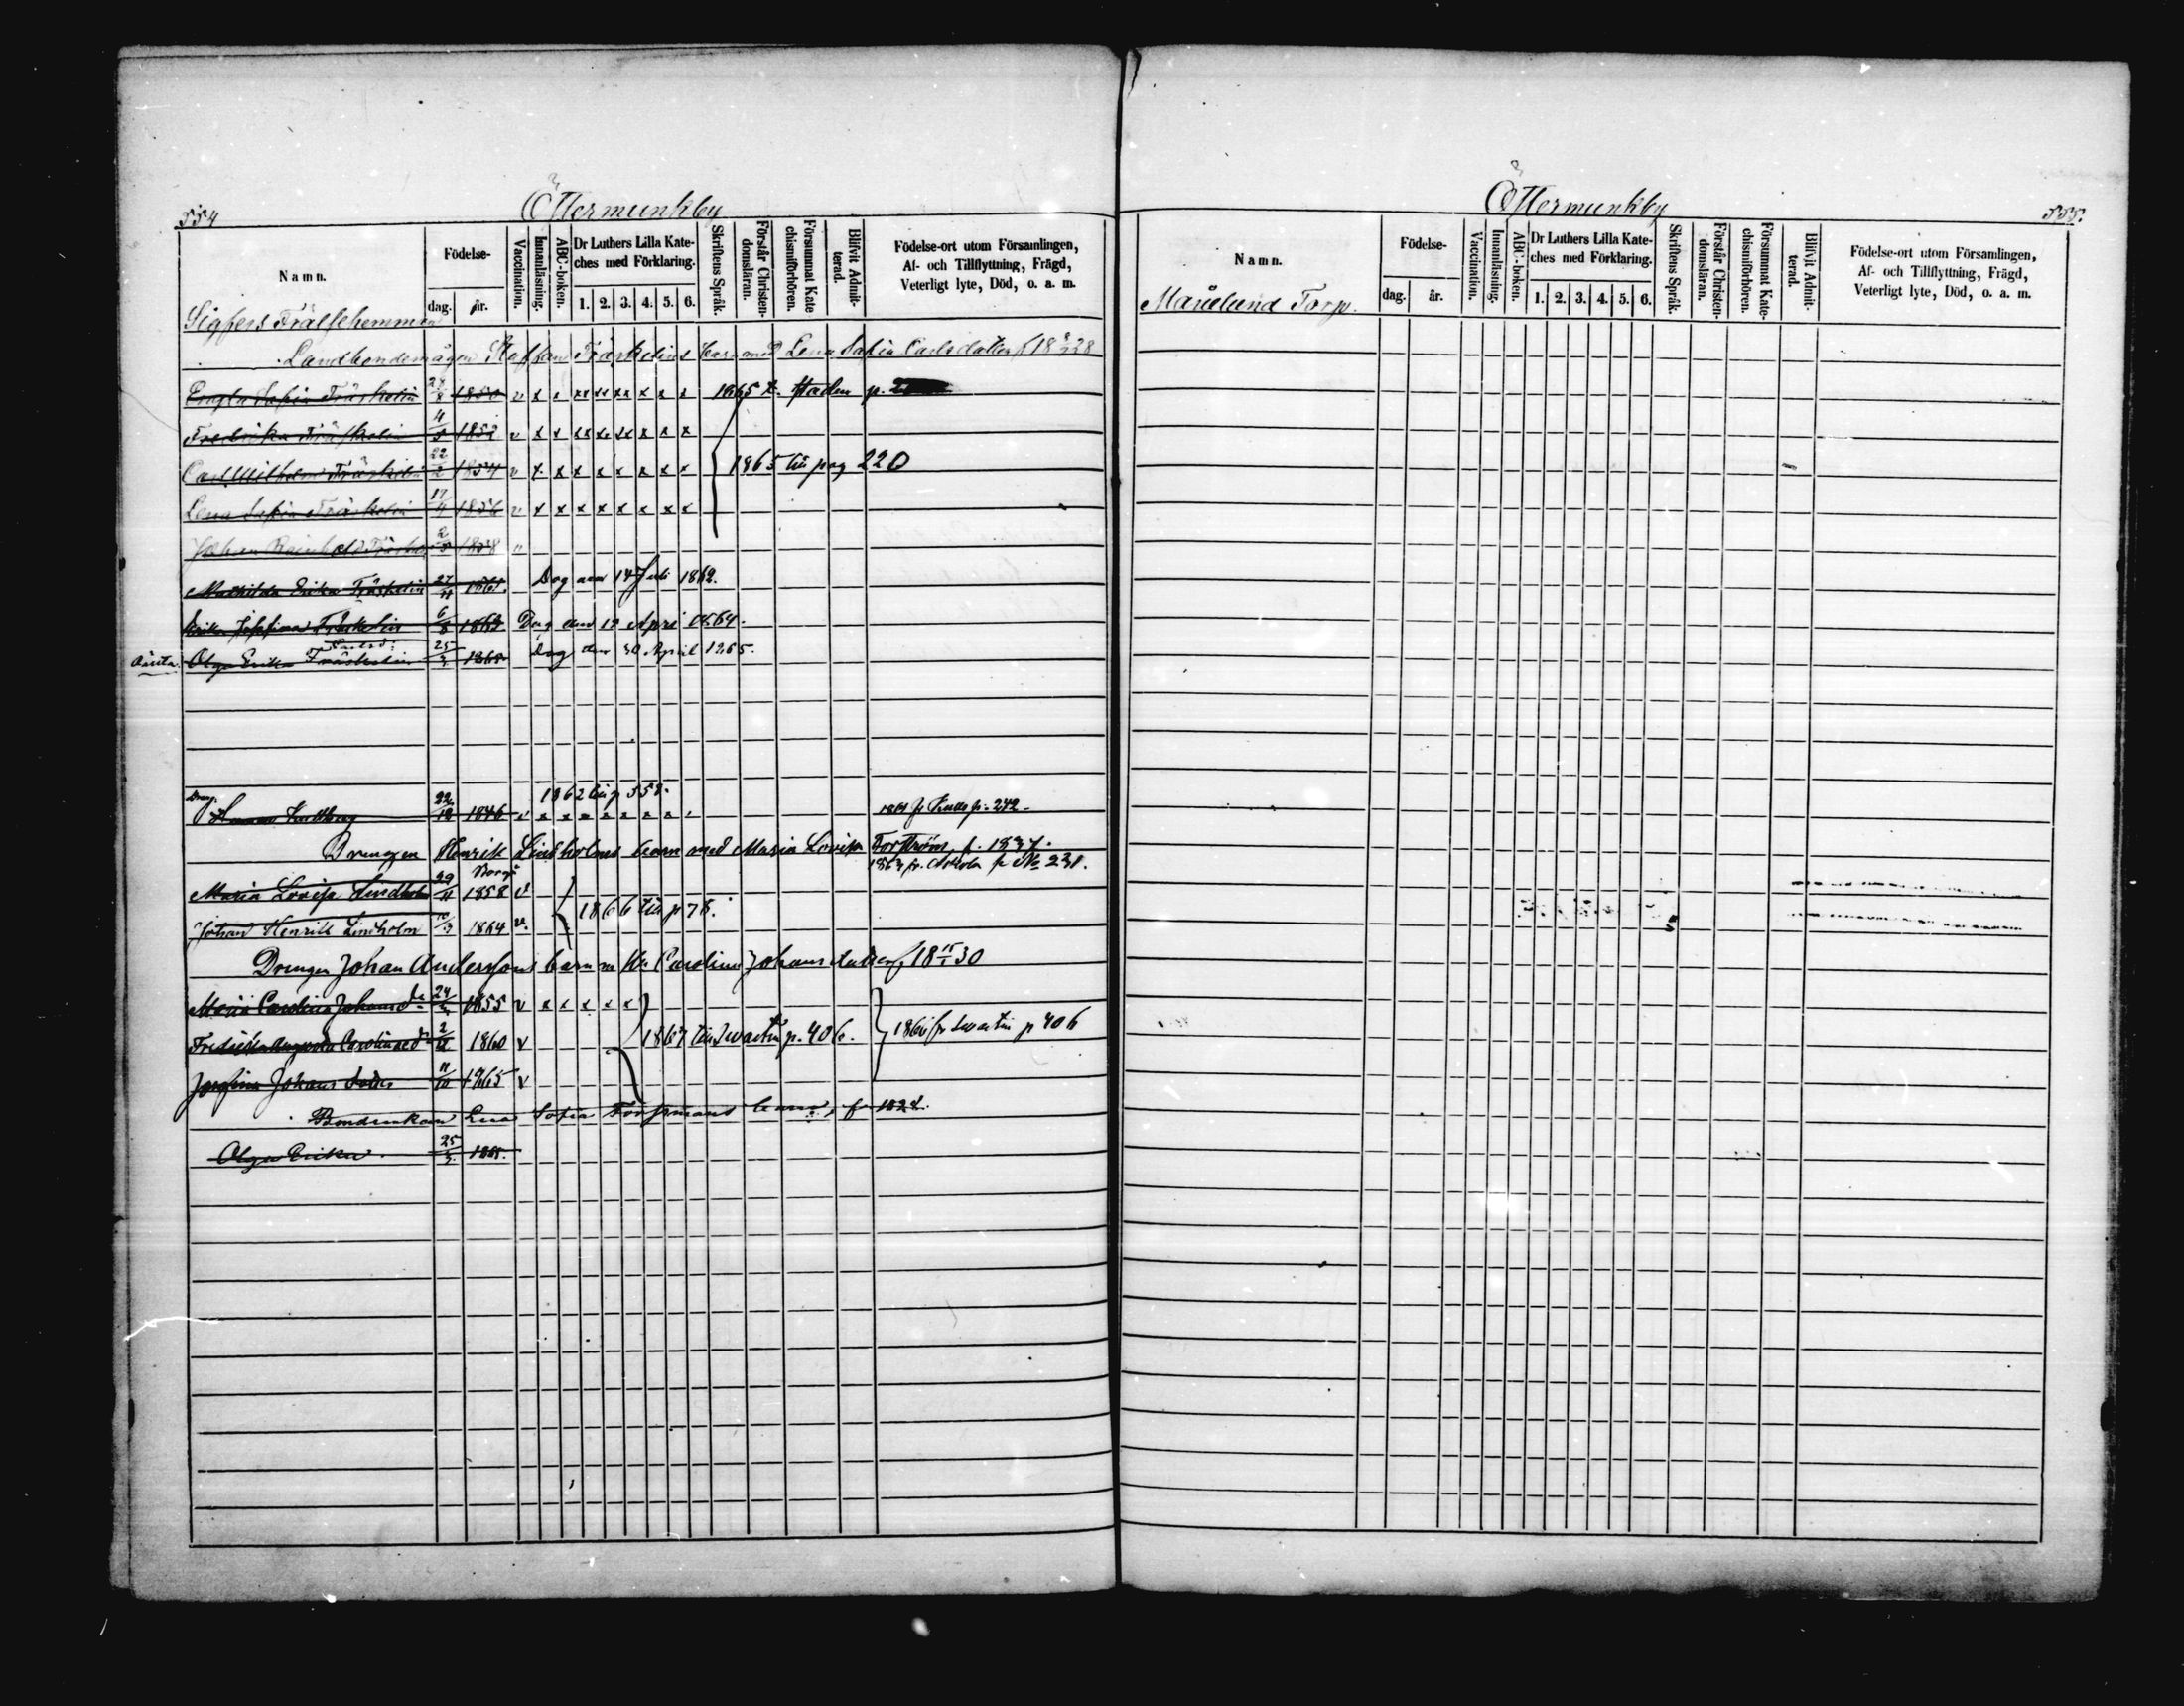 554
Östermunkby
Namn.
Födelse-
dag.
år.
Vaccination.
Innanläsning.
ABC-boken.
Dr Luthers Lilla Kate-
ches med Förklaring.
1. 2. 3. 4. 5. 6.
Skriftens Språk.
Förstår Christen-
domsläran.
Försummat Kate
chismiförhören.
Blifvit Admit-
terad.
Födelse-ort utom Församlingen,
Af- och Tillflyttning, Frägd,
Veterligt lyte, Död, o. a. m.
Sigfers Frälsehemman
Landbondemågen Staffan Träskelins barn med Lena Sofia Carlsdotter f 18 28
Sofia Träskelin 28/8 1850 v x x xx xx xx x x x 1865 t. Staden p.
Fredrika Träskelin 4/5 1852 v x x xx xx xx x x x
Carl Wilhelm Träskelin 22/2 1854 v x x x x x x x x 1865 till pag 220
Lena Sofia Träskelin 17/4 1856 v x x x x x x x x
Johan Reinhold Träskelin 2/5 1858 v
Mathilda Erika Träskelin 27/11 1861. Dog den 14 Juli 1862.
Erika Josefina Träskelin 6/8 1863 Dog den 12 April 1864.
Olga Erika Träskelin 25/3 1865 Dog den 30 April 1865.
Dreng. 22/12 1846 v x x x x x x x 1862 till p 558.
Drengen Henrik Lindholms barn med Maria Lovisa Forsström f. 1837.
Maria Lovisa Lindholm 29/11 1858 v
1866 till p 76.
Johan Henrik Lindholm 10/3 1864 v.
Drengen Johan Anderssons barn m Hu Carolina Johansdotter f 18 15/1 30
Maria Carolina Johansdr 24/5 1855 v x x x x x
Fredrika Augusta Carolina 2/12 1860 v 1867 till Svartså p. 406. 1866 fr Svartså p 406
Josefina Johans dotter 11/10 1865 v
Bondenkan Lena Sofia Forssmans barn, f 1828.
Olga Erika. 25/3 1865.
Östermunkby
555.
Namn.
Födelse-
dag.
år.
Vaccination.
Innanläsning.
ABC-boken.
Dr Luthers Lilla Kate-
ches med Förklaring.
1. 2. 3. 4. 5. 6.
Skriftens Språk.
Förstår Christen-
domsläran.
Försummat Kate-
chismiförhören.
Blifvit Admit-
terad.
Födelse-ort utom Församlingen,
Af- och Tillflyttning, Frägd,
Veterligt lyte, Död, o. a. m.
Månelund Torp.